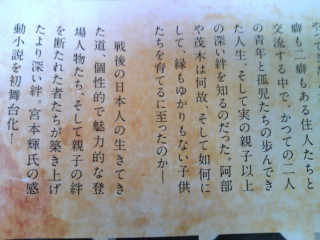 癖も二癖もある住人たちと
交流する中で、かつての二人
の青年と孤児たちの歩んでき
た人生、そして実の親子以上
の深い絆を知るのだった。阿部
や茂木は何故、そして如何に
して、縁もゆかりもない子供
たちを育てるに至ったのか―
戦後の日本人の生きてき
た道、個性的で魅力的な登
場人物たち、そして親子の絆
を断たれた者たちが築き上げ
たより深い絆。宮本輝氏の感
動小説を初舞台化―